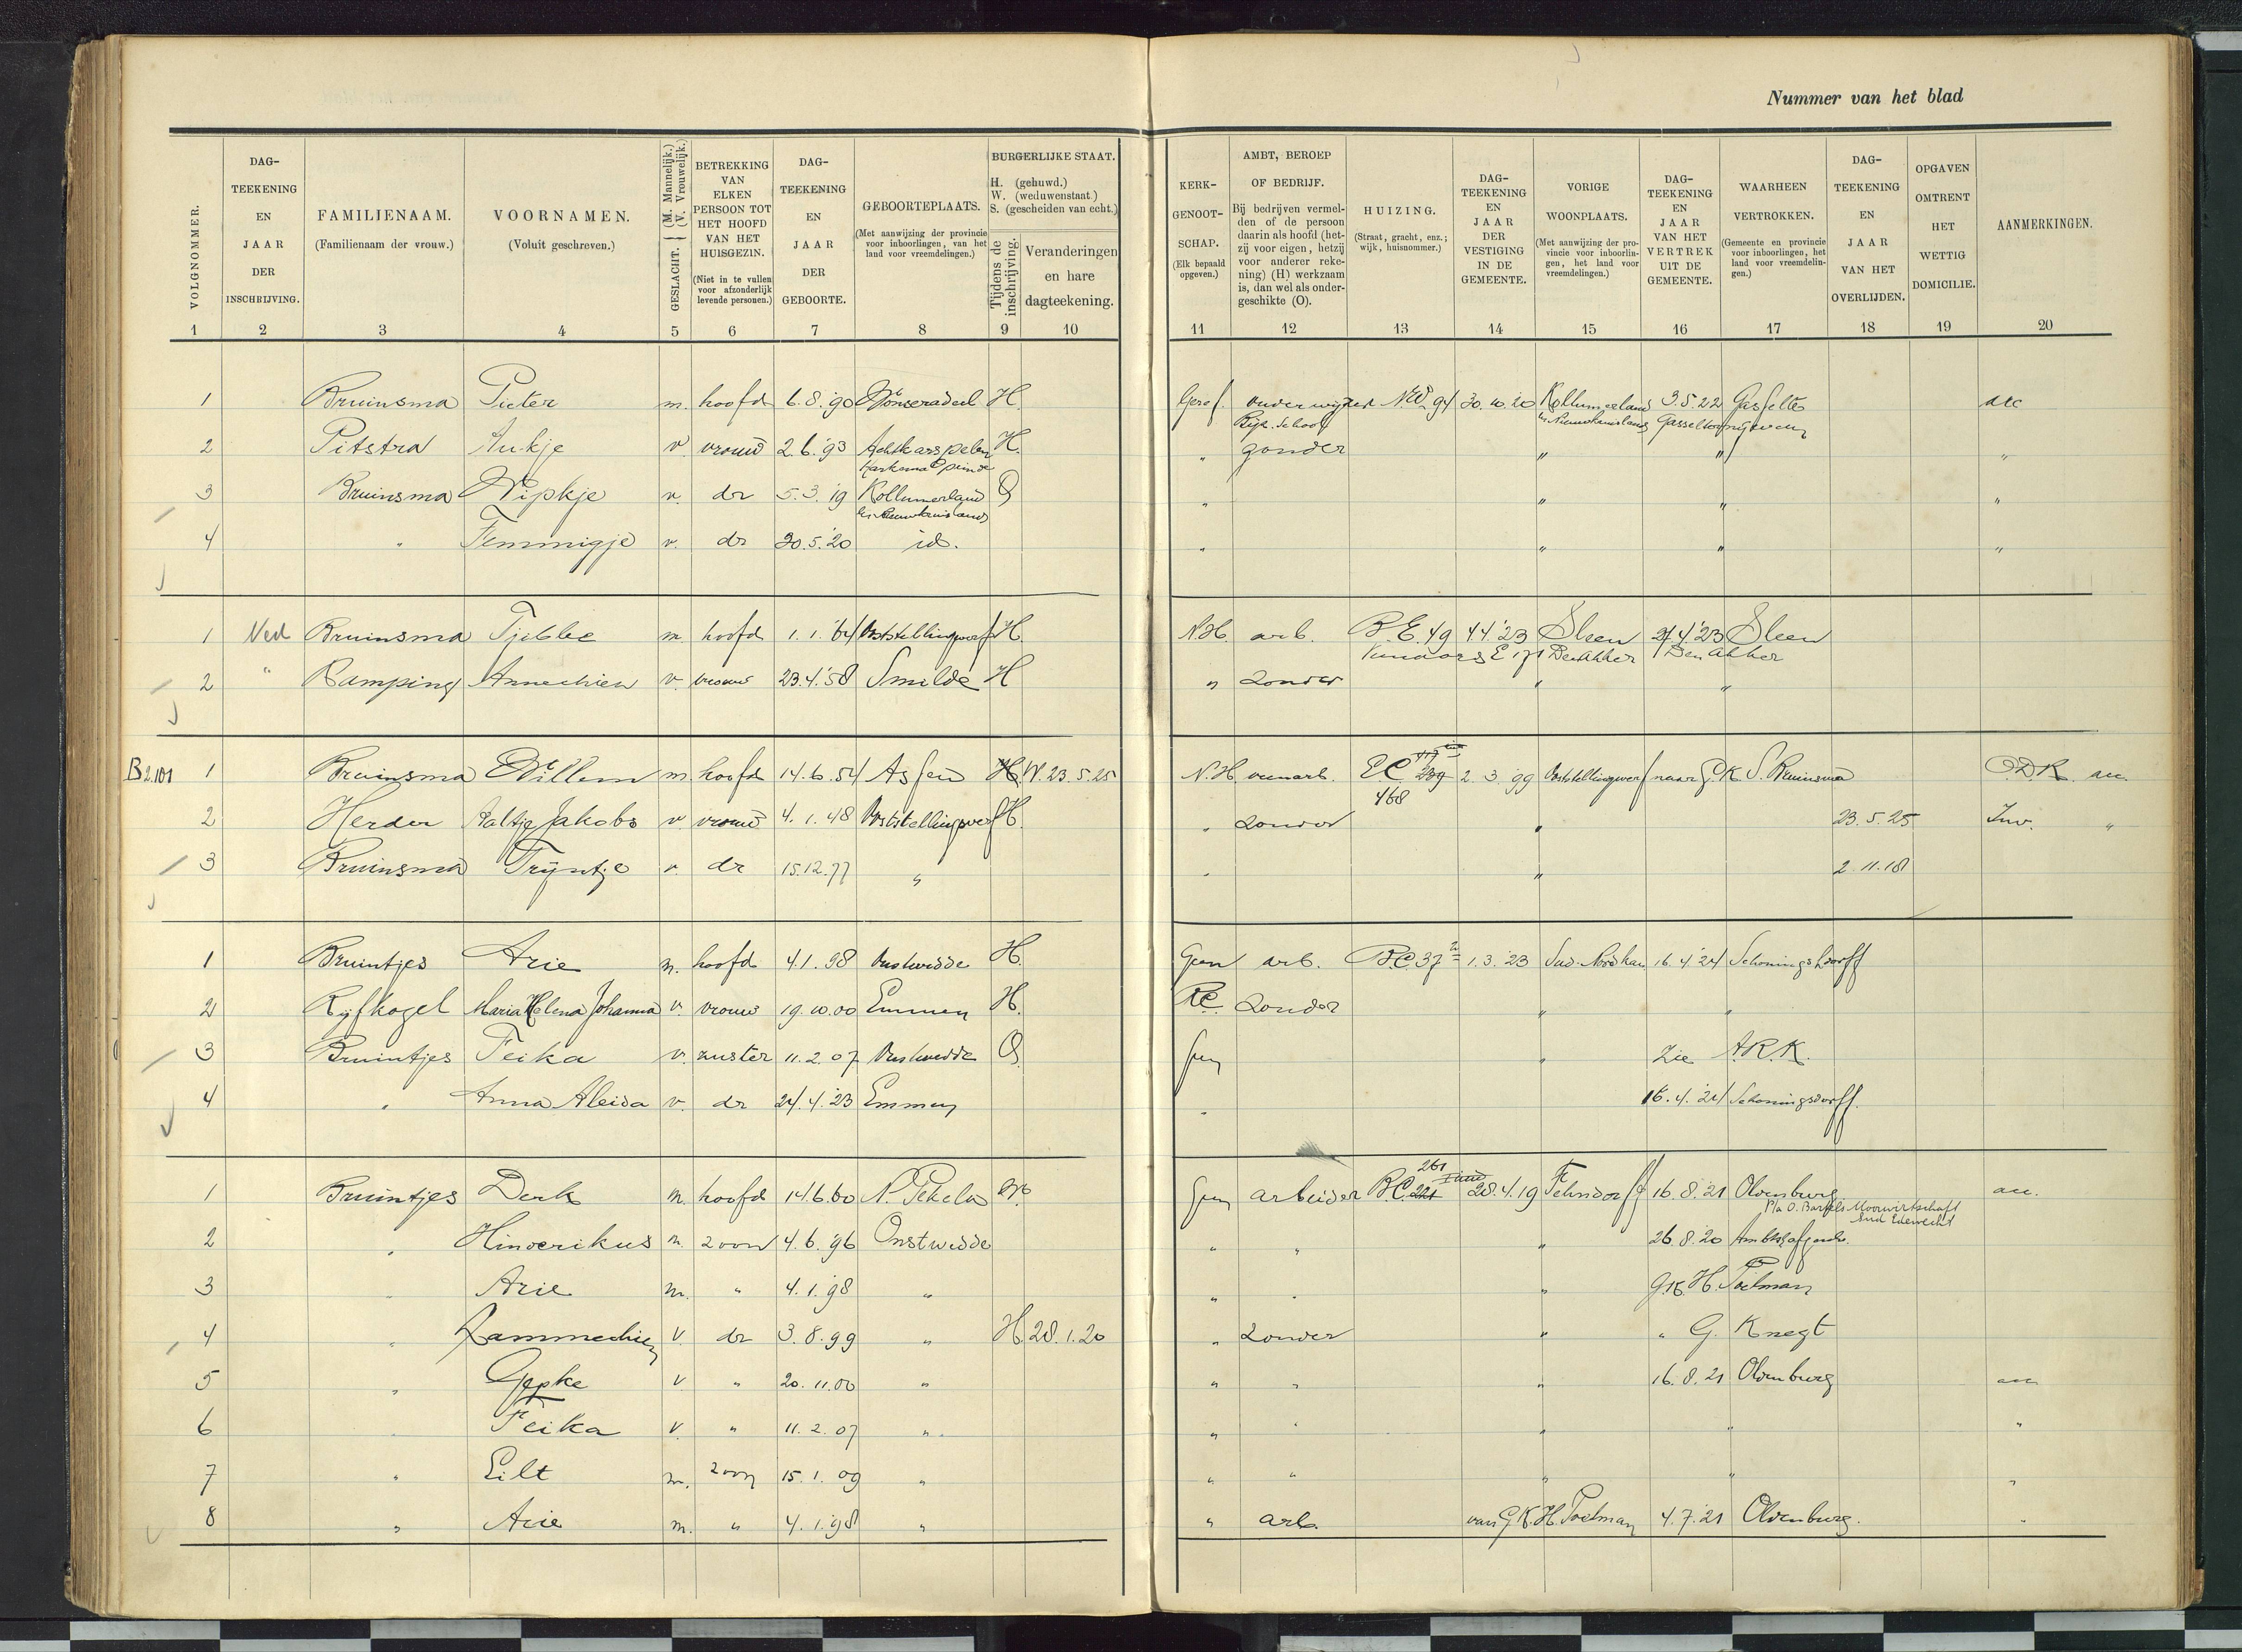 Nummer van het blad
VOLGNOMMER. DAG-TEEKENING EN JAAR DER INSCHRIJVING. FAMILIENAAM. (Familienaam der vrouw.) VOORNAMEN. (Voluit geschreven.) GESLACHT. (M. Mannelijk.) (V. Vrouwelijk.) BETREKKING VAN ELKEN PERSOON TOT HET HOOFD VAN HET HUISGEZIN. (Niet in te vullen voor afzonderlijk levende personen.) DAG-TEEKENING EN JAAR DER GEBOORTE. GEBOORTEPLAATS. (Met aanwijzing der provincie voor inboorlingen, van het land voor vreemdelingen.) BURGERLIJKE STAAT. H. (gehuwd.) W. (weduwenstaat.) S. (gescheiden van echt.) Tijdens de inschrijving. Veranderingen en hare dagteekening.
KERK-GENOOT-SCHAP. (Elk bepaald opgeven.) AMBT, BEROEP OF BEDRIJF. Bij bedrijven vermelden of de persoon daarin als hoofd (hetzij voor eigen, hetzij voor anderer rekening) (H) werkzaam is, dan wel als ondergeschikte (O). HUIZING. (Straat, gracht, enz.; wijk, huisnommer.) DAG-TEEKENING EN JAAR DER VESTIGING IN DE GEMEENTE. VORIGE WOONPLAATS. (Met aanwijzing der provincie voor inboorlingen, het land voor vreemdelingen.) DAG-TEEKENING EN JAAR VAN HET VERTREK UIT DE GEMEENTE. WAARHEEN VERTROKKEN. (Gemeente en provincie voor inboorlingen, het land voor vreemdelingen.) DAG-TEEKENING EN JAAR VAN HET OVERLIJDEN. OPGAVEN OMTRENT HET WETTIG DOMICILIE. AANMERKINGEN.
1 2 3 4 5 6 7 8 9 10 11 12 13 14 15 16 17 18 19 20
1 Bruinsma Pieter m. hoofd 6.8.'90 Wonseradeel H. Geref. onderwijzer N.W. 94 30.10.20 Kollumerland 3.5.22 Gasselte
Rijks. school en Nieuwkruisland Gasselternijveen
2 Pitstra Aukje v vrouw 2.6.'93 Achtkarspelen H. " zonder " " "
3 Bruinsma Nipkje v. dr 5.3.'19 Kollumerland O " " " "
en Nieuwkruisland
4 " Femmigje v. dr 30.5.'20 id. " " " "
1 Ned Bruinsma Tjibbe m hoofd 1.1.'64 Ooststellingwerf H. N.H. arb. B.E. 49 4.4.'23 Sleen 21.4.'23 Sleen
E 171 Den Akker Den Akker
2 " Kamping Annechien v. vrouw 23.4.'58 Smilde H " zonder " "
B2.101 1 Bruinsma Willem m. hoofd 14.6.54 Assen H W. 23.5.25 N.H. veenarb. EC 239 2.3.99 Ooststellingwerf naar G.K. S. Bruinsma
468
2 Herder Aaltje Jakobs v vrouw 4.1.48 Ooststellingwerf H. " zonder " 23.5.25 Inv. "
3 Bruinsma Trijntje v. dr 15.12.77 " " " 2.11.18
1 Bruintjes Arie m. hoofd 4.1.98 Onstwedde H. Geen arb. B.C. 37 1.3.23 16.4.'24 Schoningsdorff
2 Rijfkogel Maria Helena Johanna v. vrouw 19.10.00 Emmen H. RC. zonder " "
3 Bruintjes Feika v. zuster 11.2.07 Onstwedde O. Geen " Zie A.R.K.
4 " Anna Aleida v. dr 24.4.23 Emmen " 16.4.'24 Schoningsdorff.
1 Bruintjes Derk m. hoofd 14.6.60 N. Pekela W. Geen arbeider B.C. 221 261 28.4.19 Fehndorff 16.8.'21 Oldenburg
P/a O. Bartels Moorwirtschaft
Sud Edewecht
2 " Hinderikus m. zoon 4.6.'96 Onstwedde " " " 26.8.20
3 " Arie m. " 4.1.98 " " " " G.K. H. Poelman
4 " Lammechien v. dr 3.8.99 " H 28.1.20 " zonder " " G. Knegt
5 " Gepke v " 20.11.00 " " " " 16.8.21 Oldenburg
6 " Feika v. " 11.2.07 " " " " " "
7 " Eilt m. zoon 15.1.09 " " " " " "
8 " Arie m. " 4.1.98 " " arb. van G.K. H. Poelman 4.7.'21 Oldenburg. "